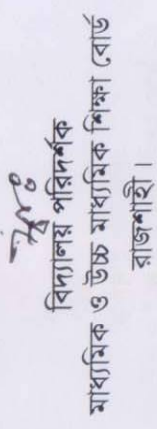 বিদ্যালয় পরিদর্শক
মাধ্যমিক ও উচ্চ মাধ্যমিক শিক্ষা বোর্ড
রাজশাহী।